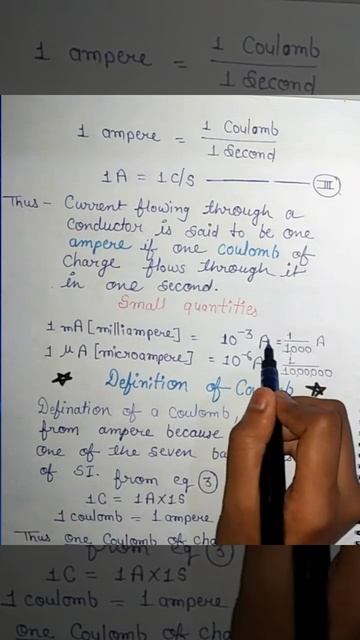 1 ampere = 1 Coulomb / 1 Second
1 ampere = 1 Coulomb / 1 Second
1A = 1C/S ——— III
Thus - Current flowing through a
conductor is said to be one
ampere if one coulomb of
charge flows through it
in one second.
Small quantities
1 mA [milliampere] = 10⁻³ A = 1/1000 A
1 μA [microampere] = 10⁻⁶ A 1/1000000
Definition of
Defination of a coulomb,
from ampere because
one of the seven
of SI. from eq 3
1C = 1A×1S
1 coulomb = 1 ampere
Thus one Coulomb of
from eq 3
1C = 1A×1S
1 coulomb = 1 ampere
one Coulomb of